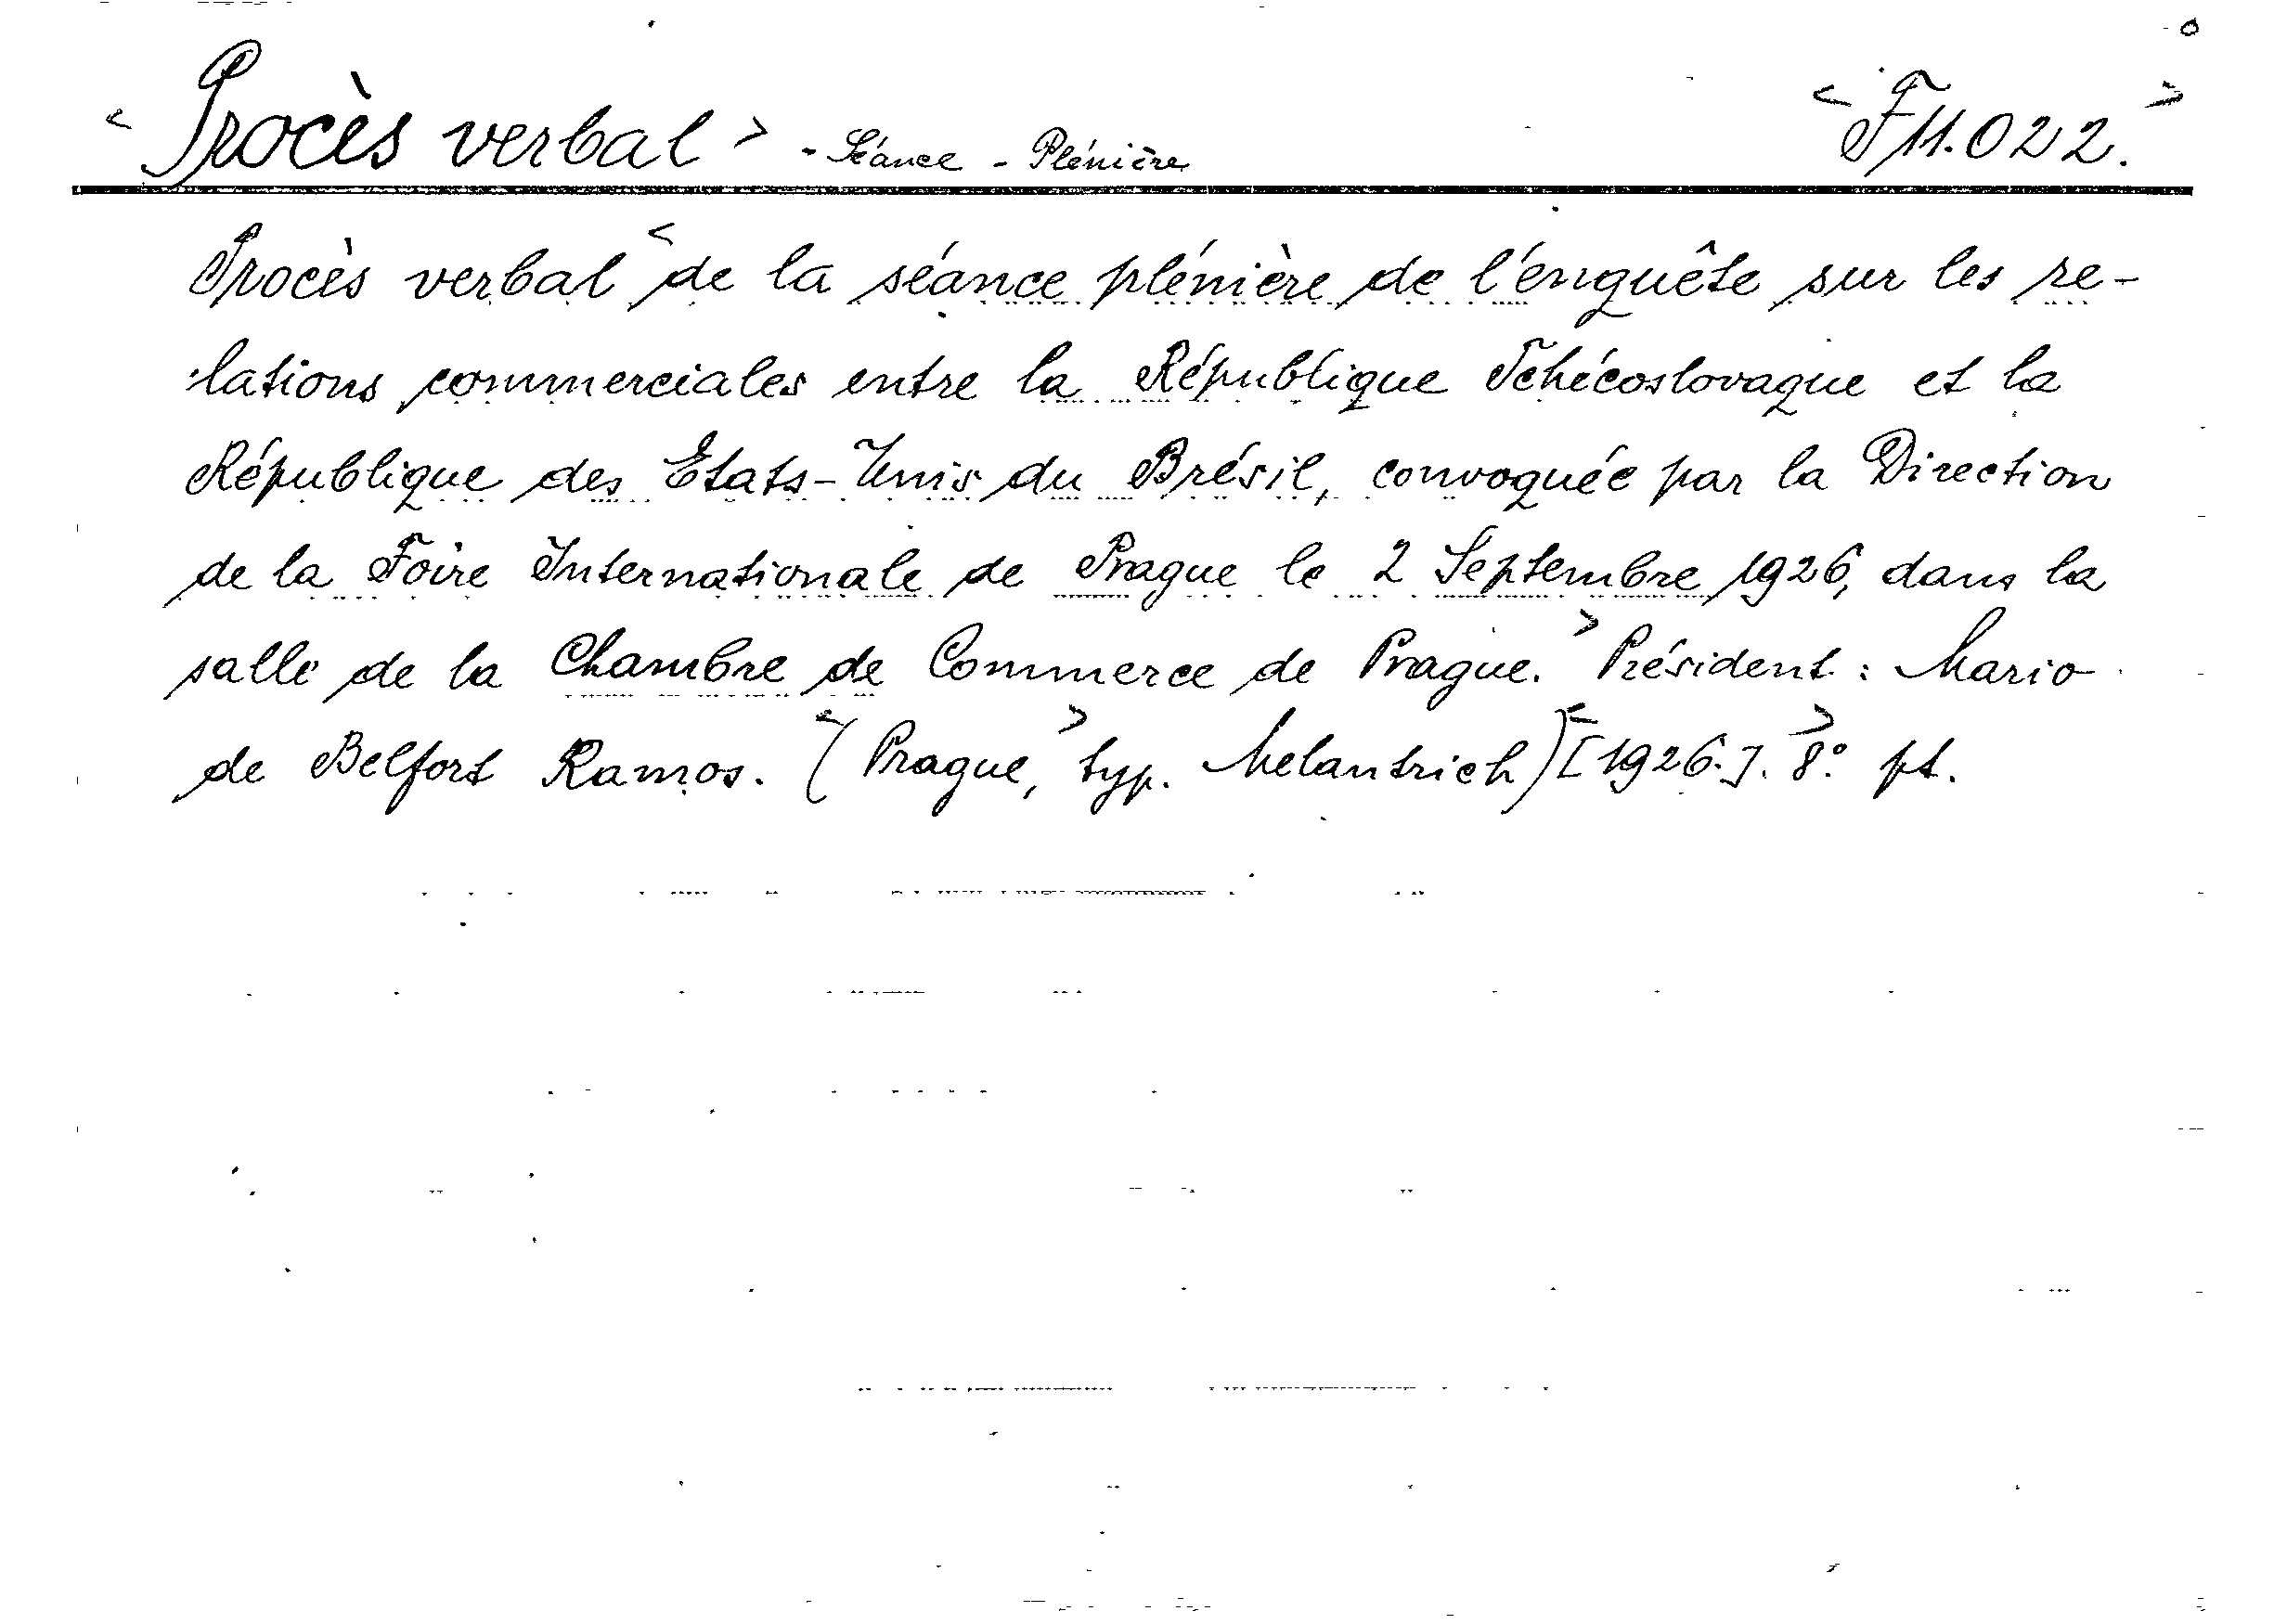 < Procès verbal > - Séance - Plénière < F 11.022. >
Procès verbal < de la séance plénière de l'enquête sur les re-
lations commerciales entre la République Tchécoslovaque et la
République des Etats-Unis du Brésil, convoquée par la Direction
de la Foire Internationale de Prague le 2 Septembre 1926, dans la
salle de la Chambre de Commerce de Prague. > Président : Mario
de Belfort Ramos. < (Prague, > typ. Melantrich) < [1926.]. > 8.° pt.